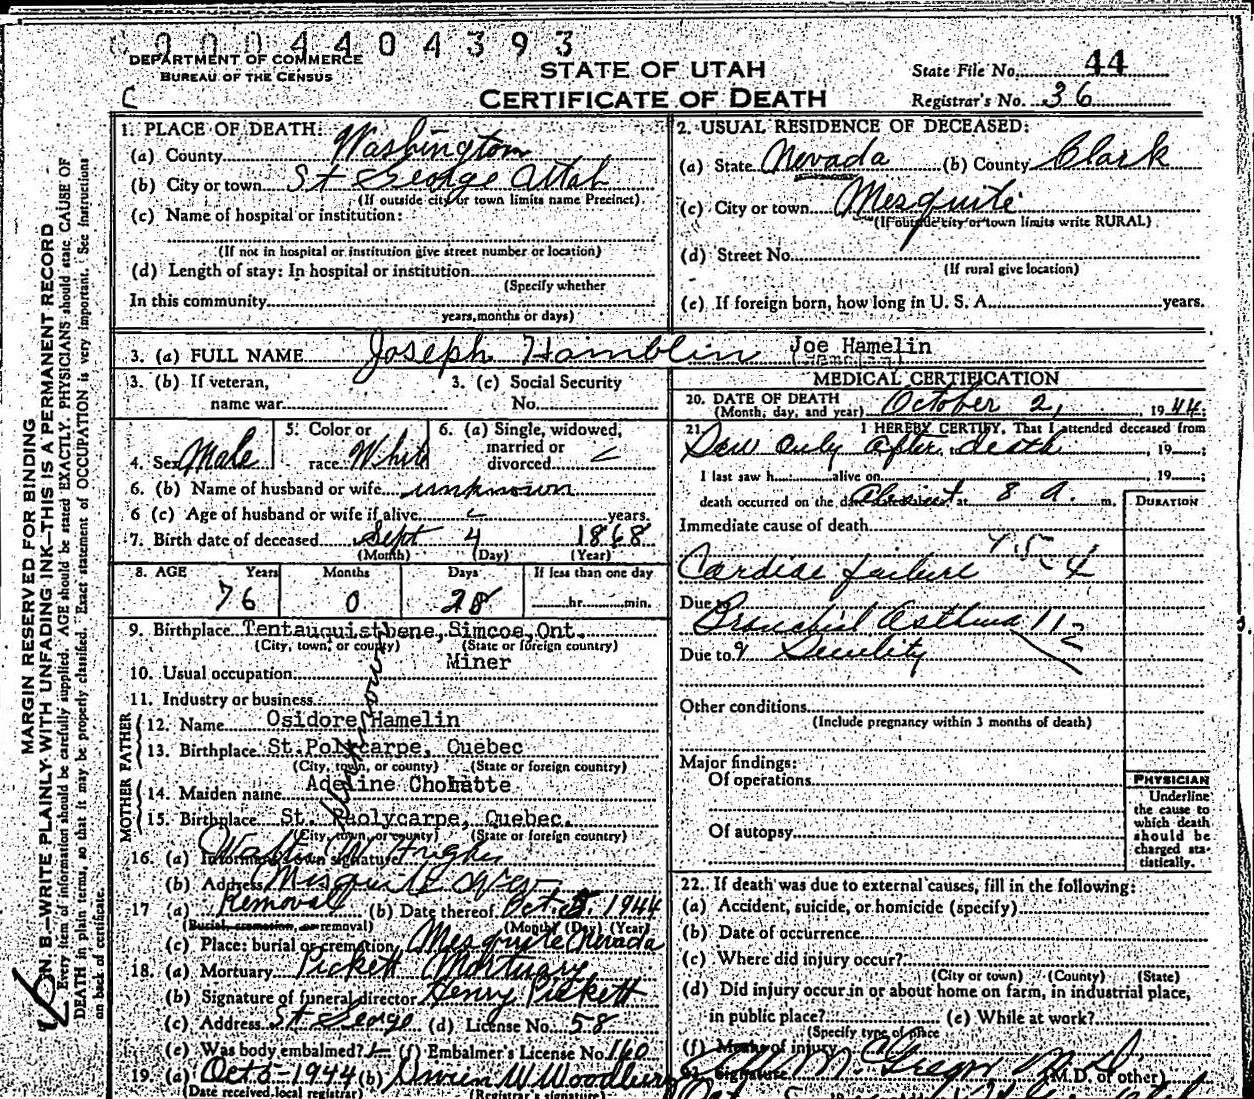 0 0 0 4 4 0 4 3 9 3
DEPARTMENT OF COMMERCE
BUREAU OF THE CENSUS
C
STATE OF UTAH
CERTIFICATE OF DEATH
State File No. 44
Registrar's No. 36
MARGIN RESERVED FOR BINDING
N. B.—WRITE PLAINLY WITH UNFADING INK—THIS IS A PERMANENT RECORD
Every item of information should be carefully supplied. AGE should be stated EXACTLY. PHYSICIANS should state CAUSE OF
DEATH in plain terms, so that it may be properly classified. Exact statement of OCCUPATION is very important. See instructions
on back of certificate.
1. PLACE OF DEATH:
(a) County Washington
(b) City or town St George Utah
(If outside city or town limits name Precinct)
(c) Name of hospital or institution:
(If not in hospital or institution give street number or location)
(d) Length of stay: In hospital or institution
(Specify whether
In this community
years, months or days)
2. USUAL RESIDENCE OF DECEASED:
(a) State Nevada (b) County Clark
(c) City or town Mesquite
(If outside city or town limits write RURAL)
(d) Street No.
(If rural give location)
(e) If foreign born, how long in U. S. A. years.
3. (a) FULL NAME Joseph Hamblin Joe Hamelin
3. (b) If veteran, 3. (c) Social Security
name war No.
4. Sex Male 5. Color or race White 6. (a) Single, widowed, married or divorced
6. (b) Name of husband or wife unknown
6 (c) Age of husband or wife if alive years.
7. Birth date of deceased Sept 4 1868
(Month) (Day) (Year)
8. AGE Years Months Days If less than one day
76 0 28 hr. min.
9. Birthplace Tentauquisthene, Simcoe, Ont.
(City, town, or county) (State or foreign country)
10. Usual occupation Miner
11. Industry or business
FATHER
12. Name Osidore Hamelin
13. Birthplace St. Polycarpe, Quebec
(City, town, or county) (State or foreign country)
MOTHER
14. Maiden name Adeline Chohatte
15. Birthplace St. Paolycarpe, Quebec.
(City, town, or county) (State or foreign country)
Unknown
16. (a) Informant's own signature Walter W Hughes
(b) Address Mesquite Nev
17 (a) Removal (b) Date thereof Oct. 1944
(Burial, cremation, or removal) (Month) (Day) (Year)
(c) Place: burial or cremation Mesquite Nevada
18. (a) Mortuary Pickett Mortuary
(b) Signature of funeral director Henry Pickett
(c) Address St George (d) License No. 58
(e) Was body embalmed? (f) Embalmer's License No. 160
19. (a) Oct 5-1944 (b) W Woodbury
(Date received local registrar) (Registrar's signature)
MEDICAL CERTIFICATION
20. DATE OF DEATH
(Month, day, and year) October 2, 1944;
21. I HEREBY CERTIFY, That I attended deceased from
Saw only after death, 19 ;
I last saw h alive on 19 ;
death occurred on the date stated above, at 8 A. m.
About
DURATION
Immediate cause of death
95-4
Cardiac failure
Due to
Bronchial Asthma 112
Due to & Senility
Other conditions
(Include pregnancy within 3 months of death)
Major findings:
Of operations
Of autopsy
PHYSICIAN
Underline
the cause to
which death
should be
charged sta-
tistically.
22. If death was due to external causes, fill in the following:
(a) Accident, suicide, or homicide (specify)
(b) Date of occurrence
(c) Where did injury occur?
(City or town) (County) (State)
(d) Did injury occur in or about home on farm, in industrial place,
in public place? (e) While at work?
(Specify type of place
(f) Means of injury
Signature McGregor M.D. (M.D. or other)
Oct 5